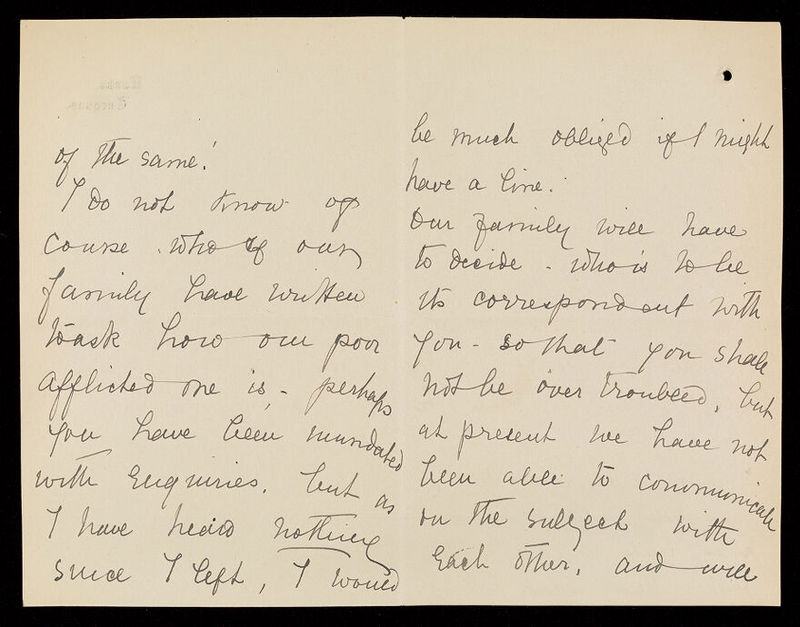 of the same!
I do not know of
course. who of our
family have written
to ask how our poor
afflicted one is - perhaps
you have been inundated
with enquiries. but as
I have heard nothing
since I left, I would
be much obliged if I might
have a line.
Our family will have
to decide - who is to be
its correspondent with
you - so that you shall
not be over troubled, but
at present we have not
been able to communicate
on the subject with
each other, and will